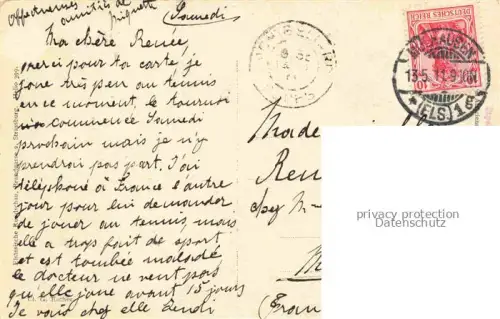 affectueuses amitiés de
Miquette
(Samedi)
Ma chère Renée,
merci pour ta carte je
joue très peu au tennis
en ce moment, le tournoi
commence Samedi
prochain mais je n'y
prendrai pas part. J'ai
téléphoné à France l'autre
jour pour lui demander
de jouer au tennis, mais
elle a trop fait de sport
et est tombée malade
le docteur ne veut pas
qu'elle joue avant 15 jours
Je vais chez elle Lundi
DEUTSCHES REICH
10
MÜLHAUSEN
13.5.11.9-10N
*(ELS)1
Made
Ren
chez M
M
(Fran
privacy protection
Datenschutz